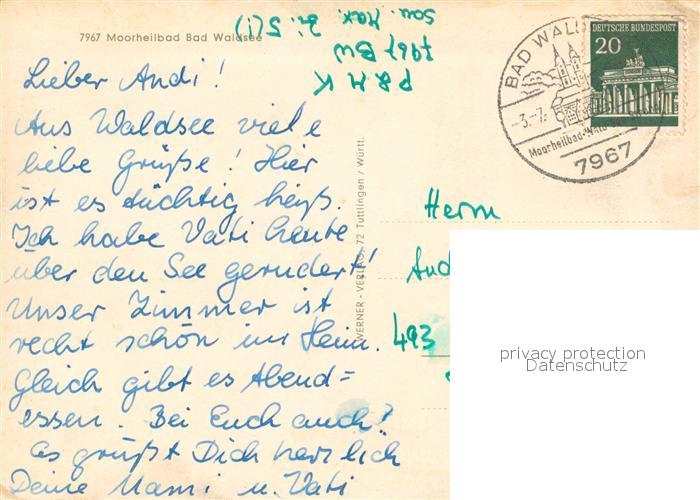 7967 Moorheilbad Bad Waldsee
San. Max. Zi. 5(1)
7967 BW
P & M K
Lieber Andi!
Aus Waldsee viele
liebe Grüße! Hier
ist es tüchtig heiß.
Ich habe Vati heute
über den See gerudert!
Unser Zimmer ist
recht schön im Heim.
Gleich gibt es Abend=
essen. Bei Euch auch?
Es grüßt Dich herzlich
Deine Mami u. Vati
WERNER - VERLAG, 72 Tuttlingen / Württ.
DEUTSCHE BUNDESPOST
20
BAD WALD
3.-7.
Moorheilbad
7967
Herrn
And
493
privacy protection
Datenschutz